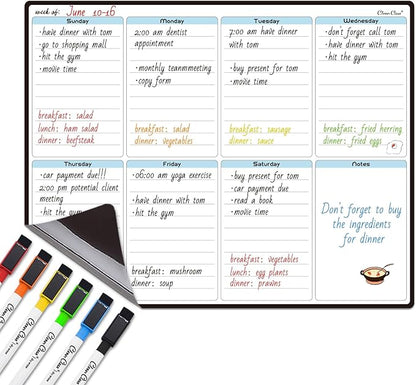 week of: June 10-16
Sunday
•have dinner with tom
•go to shopping mall
•hit the gym
•movie time
breakfast: salad
lunch: ham salad
dinner: beefsteak
Monday
2:00 am dentist
appointment
•monthly teammmeeting
•copy form
breakfast: salad
dinner: vegetables
Tuesday
7:00 am have dinner
with tom
•buy present for tom
•movie time
breakfast: sausage
dinner: sauce
Wednesday
•don't forget call tom
•have dinner with tom
•hit the gym
breakfast: fried herring
dinner: fried eggs
Thursday
•car payment due!!!
2:00 pm potential client
meeting
•hit the gym
Friday
•06:00 am yoga exercise
•have dinner with tom
•hit the gym
breakfast: mushroom
dinner: soup
Saturday
•buy present for tom
•car payment due
•read a book
•movie time
breakfast: vegetables
lunch: egg plants
dinner: prawns
Notes
Don't forget to buy
the ingredients
for dinner